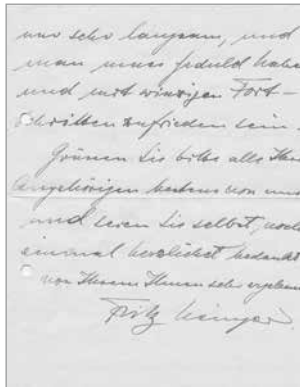 nur sehr langsam, und
man muss Geduld haben
und mit winzigen Fort-
schritten zufrieden sein.
Grüssen Sie bitte alle Ihre
Angehörigen bestens von uns
und seien Sie selbst, noch
einmal herzlichst bedankt
von Ihrem Ihnen sehr ergeben
Fritz